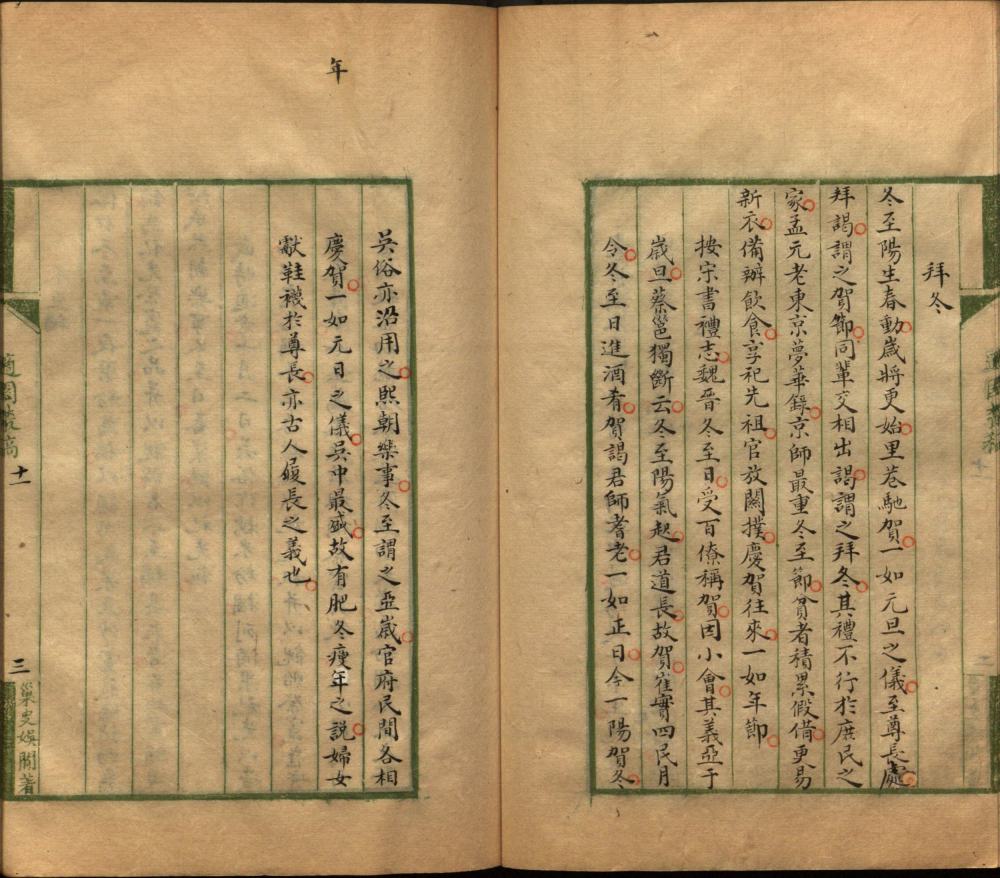 拜冬
冬至陽生春動歲將更始里巷馳賀一如元旦之儀至尊長處
拜謁謂之賀節同輩交相出謁謂之拜冬其禮不行於庶民之
家孟元老東京夢華錄京師最重冬至節貧者積累假備更易
新衣備辦飲食享祀先祖官放關撲慶賀往來一如年節
按宋書禮志魏晉冬至日受百僚稱賀因小會其義亞于
歲旦蔡邕獨斷云冬至陽氣起君道長故賀崔寔四民月
令冬至日進酒肴賀謁君師耆老一如正日今一陽賀冬
年
吳俗亦沿用之熙朝樂事冬至謂之亞歲官府民間各相
慶賀一如元日之儀吳中最盛故有肥冬瘦年之說婦女
獻鞋襪於尊長亦古人履長之義也
十一
三
巢史娛閒著